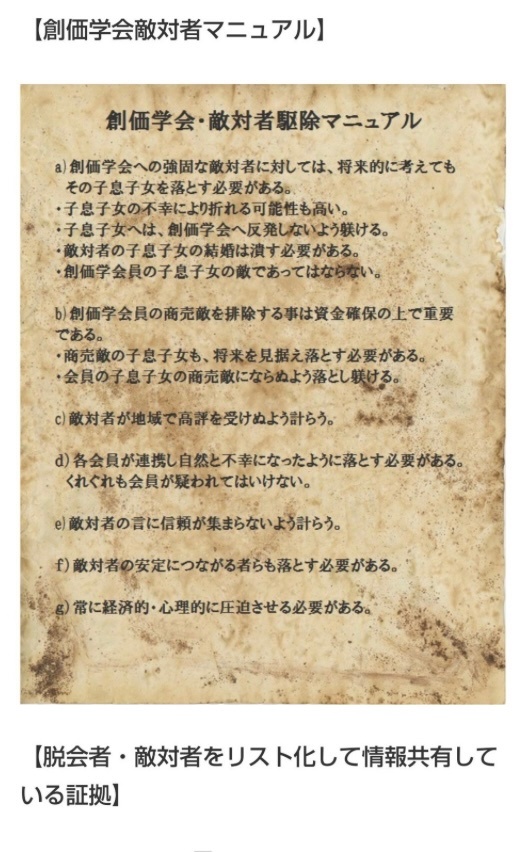 【創価学会敵対者マニュアル】
創価学会・敵対者駆除マニュアル
a)創価学会への強固な敵対者に対しては、将来的に考えても
その子息子女を落とす必要がある。
・子息子女の不幸により折れる可能性も高い。
・子息子女へは、創価学会へ反発しないよう躾ける。
・敵対者の子息子女の結婚は潰す必要がある。
・創価学会員の子息子女の敵であってはならない。
b)創価学会員の商売敵を排除する事は資金確保の上で重要
である。
・商売敵の子息子女も、将来を見据え落とす必要がある。
・会員の子息子女の商売敵にならぬよう落とし躾ける。
c)敵対者が地域で高評を受けぬよう計らう。
d)各会員が連携し自然と不幸になったように落とす必要がある。
くれぐれも会員が疑われてはいけない。
e)敵対者の言に信頼が集まらないよう計らう。
f)敵対者の安定につながる者らも落とす必要がある。
g)常に経済的・心理的に圧迫させる必要がある。
【脱会者・敵対者をリスト化して情報共有して
いる証拠】